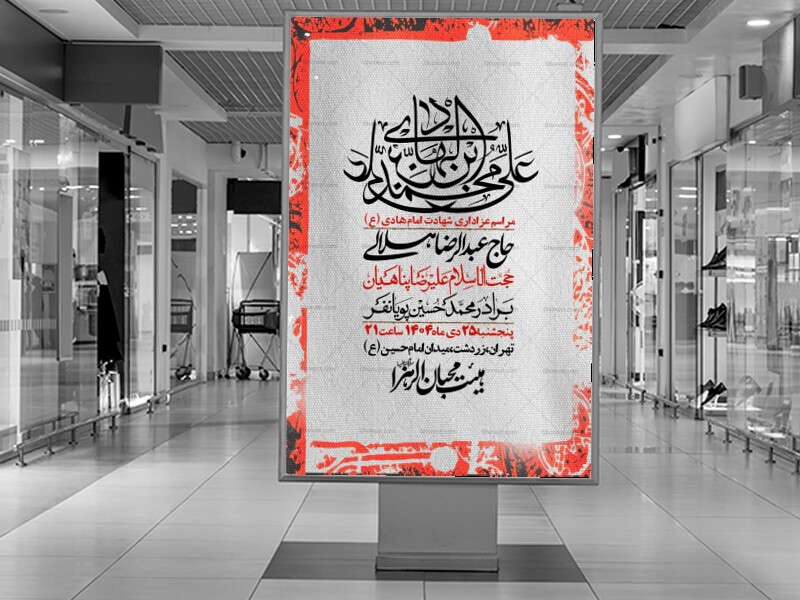 علی بن محمد الهادی
مراسم عزاداری شهادت امام هادی (ع)
حاج عبدالرضا هلالی
حجت‌الاسلام علیرضا پناهیان
برادر محمدحسین پویانفر
پنجشنبه ۲۵ دی ماه ۱۴۰۴ ساعت ۲۱
تهران، زردشت، میدان امام حسین (ع)
هیئت محبان الزهرا